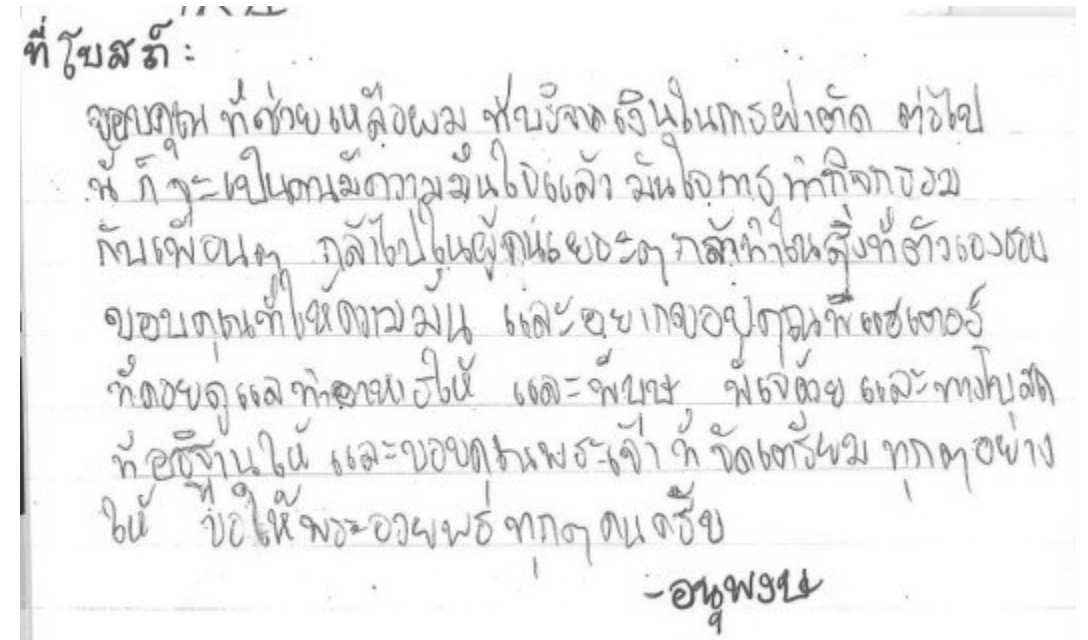 ที่โบสถ์:
ขอบคุณ ที่ช่วยเหลือผม ที่บริจาคเงินในการผ่าตัด ต่อไป
นี้ ก็จะเป็นคนมีความมั่นใจแล้ว มั่นใจการทำกิจกรรม
กับเพื่อนๆ กล้าไปในผู้คนเยอะๆ กล้าทำในสิ่งที่ตัวเองชอบ
ขอบคุณที่ให้ความมั่น และอยากขอบคุณพี่แฮเตอร์
ที่คอยดูแลทำอาหารให้ และพี่บุษ พี่แจ๋วด้วย และทางโบสถ
ที่อธิฐานให้ และขอบคุณพระเจ้า ที่จัดเตรียม ทุกๆอย่าง
ให้ ขอให้พระอวยพร ทุกๆคนครับ
-อนุพงษ